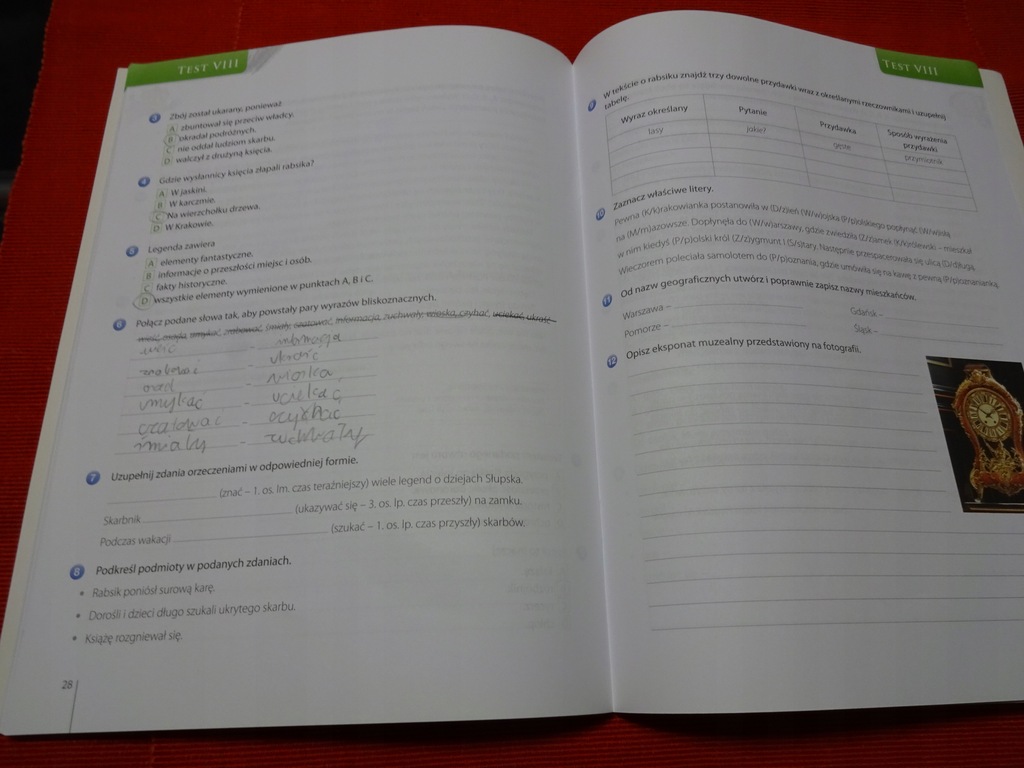 TEST VIII
3 Zbój został ukarany, ponieważ
A zbuntował się przeciw władcy.
B okradał podróżnych.
C nie oddał ludziom skarbu.
D walczył z drużyną księcia.
4 Gdzie wysłannicy księcia złapali rabsika?
A W jaskini.
B W karczmie.
C Na wierzchołku drzewa.
D W Krakowie.
5 Legenda zawiera
A elementy fantastyczne.
B informacje o przeszłości miejsc i osób.
C fakty historyczne.
D wszystkie elementy wymienione w punktach A, B i C.
6 Połącz podane słowa tak, aby powstały pary wyrazów bliskoznacznych.
śmiały, czatować, informacja, zuchwały, wioska, czyhać, uciekać, ukraść
wieść - informacja
- ukraść
osad - wioska
umykać - uciekać
czatować - czyhać
śmiały - zuchwały
7 Uzupełnij zdania orzeczeniami w odpowiedniej formie.
(znać – 1. os. lm. czas teraźniejszy) wiele legend o dziejach Słupska.
Skarbnik (ukazywać się – 3. os. lp. czas przeszły) na zamku.
Podczas wakacji (szukać – 1. os. lp. czas przyszły) skarbów.
8 Podkreśl podmioty w podanych zdaniach.
• Rabsik poniósł surową karę.
• Dorośli i dzieci długo szukali ukrytego skarbu.
• Książę rozgniewał się.
28
TEST VIII
9 W tekście o rabsiku znajdź trzy dowolne przydawki wraz z określanymi rzeczownikami i uzupełnij
tabelę.
Wyraz określany Pytanie Przydawka Sposób wyrażenia przydawki
lasy jakie? gęste przymiotnik
10 Zaznacz właściwe litery.
Pewna (K/k)rakowianka postanowiła w (D/d)zień (W/w)ojska (P/p)olskiego popłynąć (W/w)isłą
na (M/m)azowsze. Dopłynęła do (W/w)arszawy, gdzie zwiedziła (Z/z)amek (K/k)rólewski – mieszkał
w nim kiedyś (P/p)olski król (Z/z)ygmunt I (S/s)tary. Następnie przespacerowała się ulicą (D/d)ługą.
Wieczorem poleciała samolotem do (P/p)oznania, gdzie umówiła się na kawę z pewną (P/p)oznanianką.
11 Od nazw geograficznych utwórz i poprawnie zapisz nazwy mieszkańców.
Warszawa – Gdańsk –
Pomorze – Śląsk –
12 Opisz eksponat muzealny przedstawiony na fotografii.